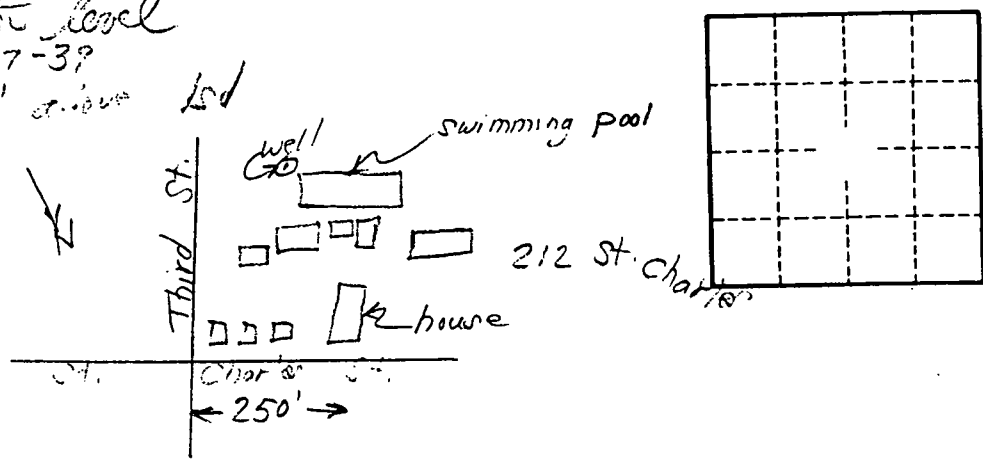 level
7-39
above lsd
well
swimming pool
Third St.
212 St. Charles
house
St. Charles St.
250'